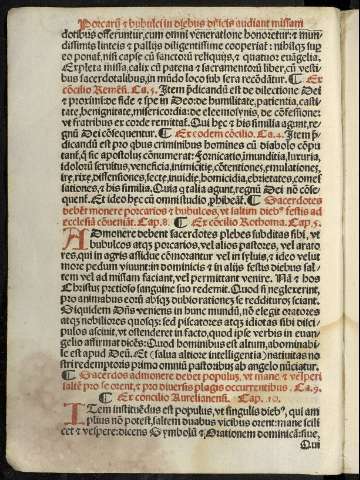 Porcarij & bubulci in diebus dñicis audiant missam
dotibus offeruntur, cum omni veneratione honoretur: & mun
dissimis linteis & pallijs diligentissime cooperiat̃: nihilqʒ sup
eo ponat̃, nisi capse cũ sanctorũ reliquijs, & quatuor euãgelia.
Expleta missa, calix cũ patena & sacramentorũ liber, cũ vesti
bus sacerdotalibus, in mũdo loco sub sera recõdãtur. ¶ Ex
cõcilio Remẽsi. Ca. 5. Itẽ p̃dicandũ est de dilectione Dei
& proximi: de fide & spe in Deo: de humilitate, patientia, casti
tate, benignitate, misericordia: de eleemosynis, de cõfessione
vt fratribus ex corde remittat̃. Qui hęc & his similia agunt, re
gnũ Dei cõsequentur. ¶ Ex eodem cõcilio. Ca. 4. Itẽ p̃di
candũ est pro qbus criminibus homines cũ diabolo cõpu
tant̃, sic apostolus cõnumerat: Fornicatio, immunditia, luxuria,
idolorũ seruitus, veneficia, inimicitię, cõtentiones, ęmulationes,
irę, rixę, dissensiones, sectę, inuidię, homicidia, ebrietates, comes
sationes, & his similia. Quia q̃ talia agunt, regnũ Dei nõ cõse
quent̃. Et ideo hęc cũ omni studio, phibeãt̃. ¶ Sacerdotes
debẽt monere porcarios & bubulcos, vt saltim dieb⁹ festis ad
ecclesiã cõueniãt. Cap. 8. ¶ Ex cõcilio Rothoma. Cap. 5.
ADmonere debent sacerdotes plebes subditas sibi, vt
bubulcos atqʒ porcarios, vel alios pastores, vel arato
res, qui in agris assidue cõmorantur vel in syluis, & ideo velut
more pecudum viuunt: in dominicis & in alijs festis diebus sal
tem vel ad missam faciant, vel permittant venire. Nã & hos
Christus pretioso sanguine suo redemit. Quod si neglexerint,
pro animabus eorũ absqʒ dubio rationẽ se reddituros sciant.
Siquidem Dñs veniens in hunc mundũ, nõ elegit oratores
atqʒ nobiliores quosqʒ: sed piscatores atqʒ idiotas sibi disci
pulos asciuit: vt ostenderet in facto, quod ipse verbis in euan
gelio affirmat dicẽs: Quod hominibus est altum, abominabi
le est apud Deũ. Et (salua altiore intelligentia) natiuitas no
stri redemptoris primo omniũ pastoribus ab angelo nũciatur.
¶ Sacerdos admonere debet populũ, vt mane & vesperi
saltẽ pro se orent, & pro diuersis plagis occurrentibus. Ca. 9.
¶ Ex concilio Aurelianensi. Cap. 10.
ITem instituẽdus est populus, vt singulis dieb⁹, qui am
plius nõ potest, saltem duabus vicibus oret: mane scili
cet & vespere: dicens Symbolũ & Orationem dominicã: siue,
Qui